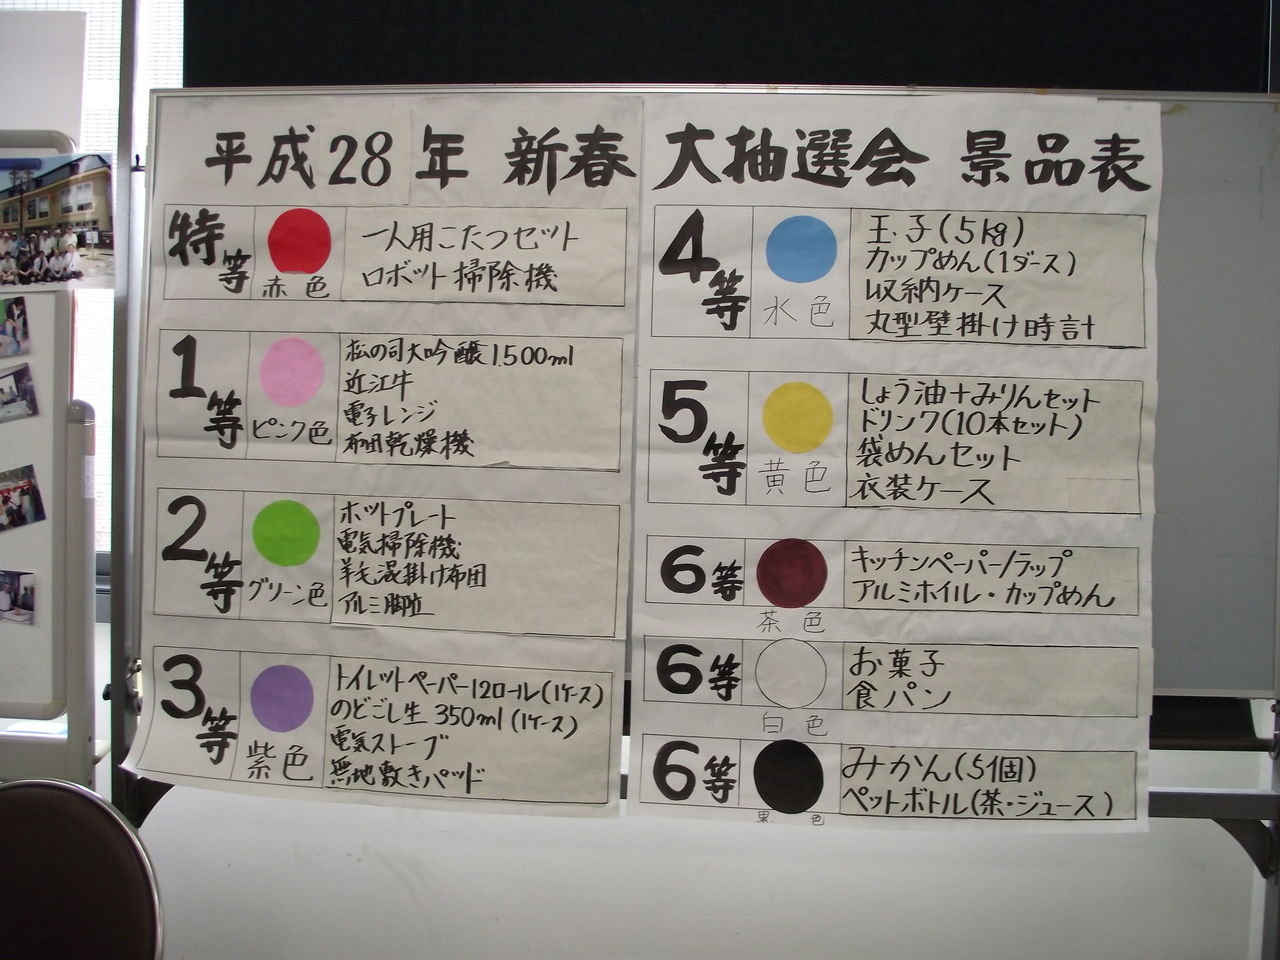 平成28年 新春 大抽選会 景品表
特等
赤色
一人用こたつセット
ロボット掃除機
1等
ピンク色
松の司大吟醸1.500ml
近江牛
電子レンジ
布団乾燥機
2等
グリーン色
ホットプレート
電気掃除機
羊毛混掛け布団
アルミ脚立
3等
紫色
トイレットペーパー12ロール(1ケース)
のどごし生 350ml(1ケース)
電気ストーブ
無地敷きパッド
4等
水色
玉子(5kg)
カップめん(1ダース)
収納ケース
丸型壁掛け時計
5等
黄色
しょう油+みりんセット
ドリンク(10本セット)
袋めんセット
衣装ケース
6等
茶色
キッチンペーパー/ラップ
アルミホイル・カップめん
6等
白色
お菓子
食パン
6等
黒色
みかん(5個)
ペットボトル(茶・ジュース)